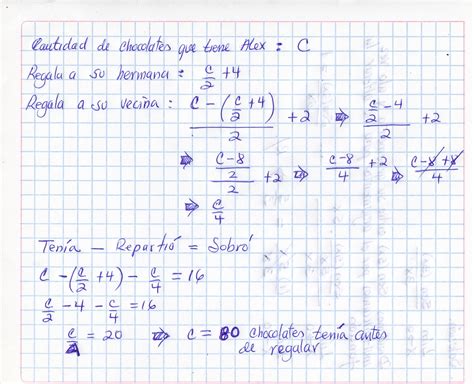 Cantidad de chocolates que tiene Alex : C
Regala a su hermana : c/2 + 4
Regala a su vecina : (c - (c/2 + 4))/2 + 2 ⇒ (c/2 - 4)/2 + 2
⇒ ((c-8)/2)/2 + 2 ⇒ (c-8)/4 + 2 ⇒ (c-8+8)/4
⇒ c/4
Tenía - Repartió = Sobró
c - (c/2 + 4) - c/4 = 16
c/2 - 4 - c/4 = 16
c/4 = 20 ⇒ c = 80 chocolates tenía antes
de regalar